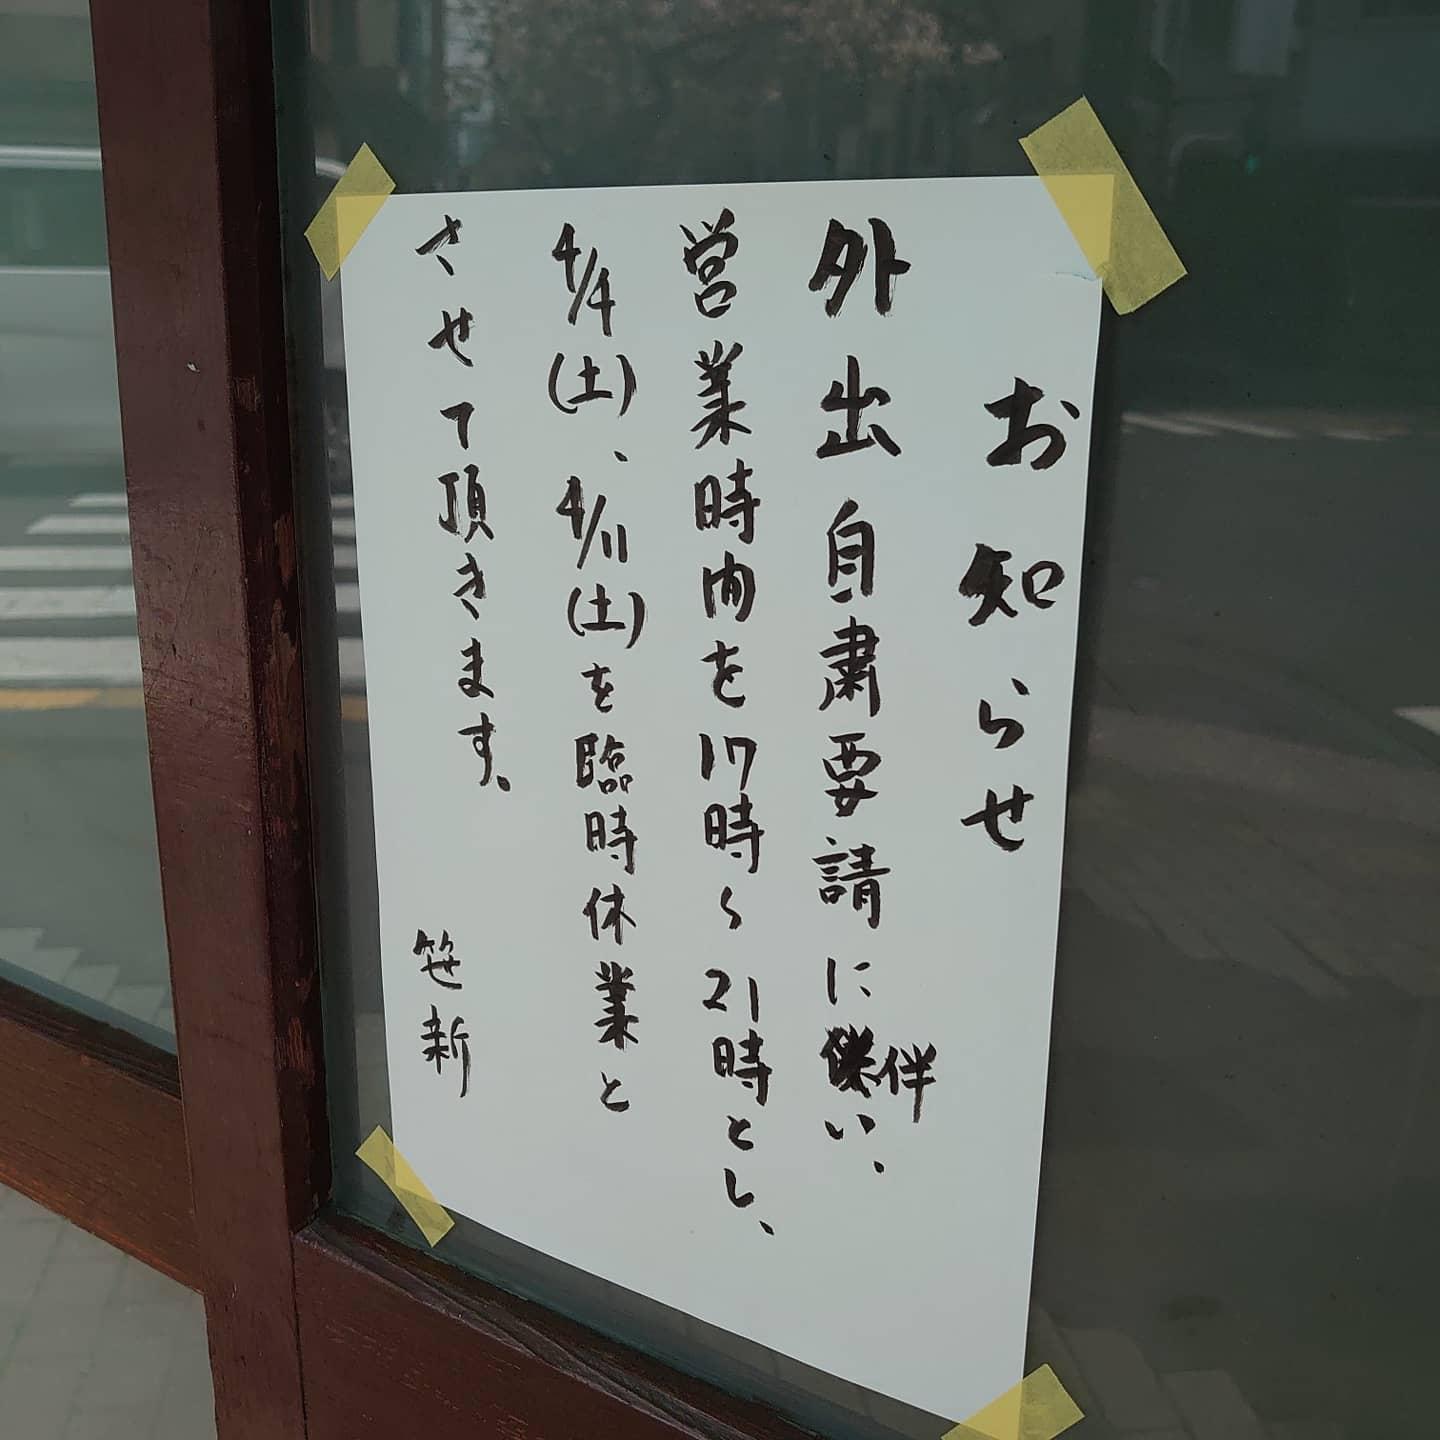 お知らせ
外出自粛要請に伴い、
営業時間を17時〜21時とし、
4/4(土)、4/11(土)を臨時休業と
させて頂きます。
笹新